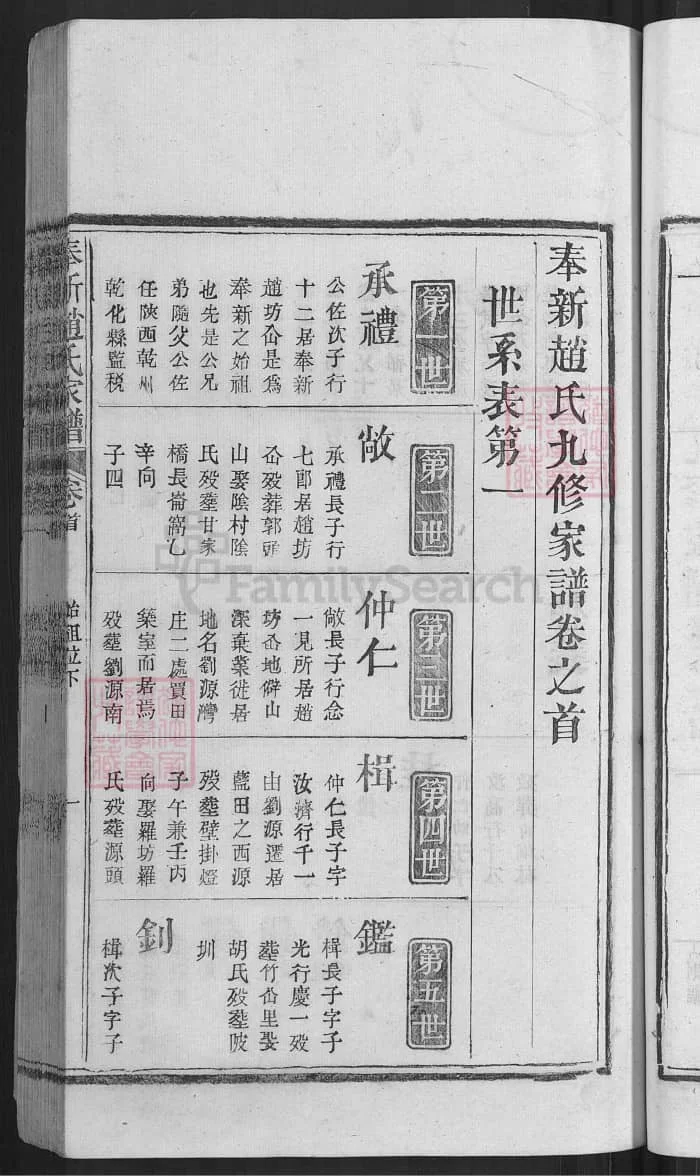 奉新趙氏九修家譜卷之首
世系表第一
第一世
承禮
公佐次子行
十二居奉新
趙坊峃是爲
奉新之始祖
也先是公兄
弟隨父公佐
任陝西乾州
乾化縣監稅
第二世
敞
承禮長子行
七郎居趙坊
峃歿葬郭頭
山娶陰村陰
氏歿葬甘家
橋長崙窩乙
辛向
子四
第三世
仲仁
敞長子行念
一見所居趙
坊峃地僻山
深棄業徙居
地名劉源灣
庄二處買田
築室而居焉
歿葬劉源南
第四世
楫
仲仁長子字
汝濟行千一
由劉源遷居
藍田之西源
歿葬壁掛燈
子午兼壬丙
向娶羅坊羅
氏歿葬源頭
第五世
鑑
楫長子字子
光行慶一歿
葬竹峃里娶
胡氏歿葬陂
圳
釗
楫次子字子
奉新趙氏家譜
卷首
始祖位下
一
FamilySearch